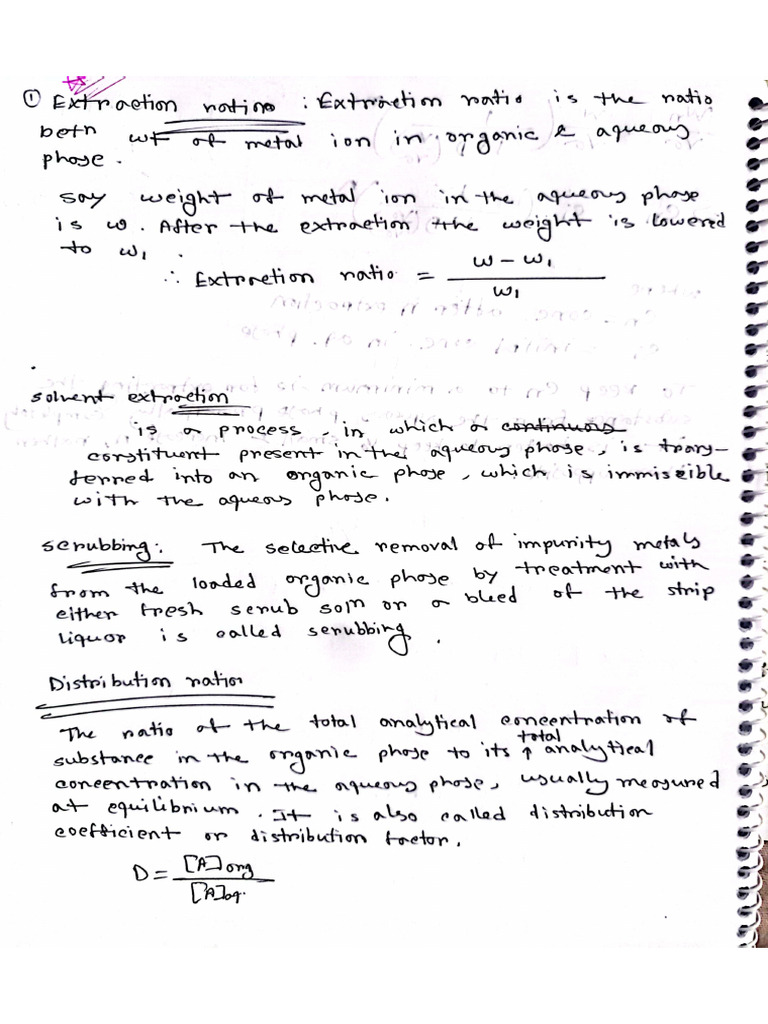 ① Extraction ratio : Extraction ratio is the ratio
betn wt of metal ion in organic & aqueous
phase.
say weight of metal ion in the aqueous phase
is w. After the extraction the weight is lowered
to w₁.
∴ Extraction ratio = (w - w₁) / w₁
solvent extraction
is a process, in which a ~~continuous~~
constituent present in the aqueous phase, is trans-
ferred into an organic phase, which is immiscible
with the aqueous phase.
scrubbing: The selective removal of impurity metals
from the loaded organic phase by treatment with
either fresh scrub soln or a bleed of the strip
liquor is called scrubbing.
Distribution ratio
The ratio of the total analytical concentration of
substance in the organic phase to its total analytical
concentration in the aqueous phase, usually measured
at equilibrium. It is also called distribution
coefficient or distribution factor.
D = [A]org / [A]aq.